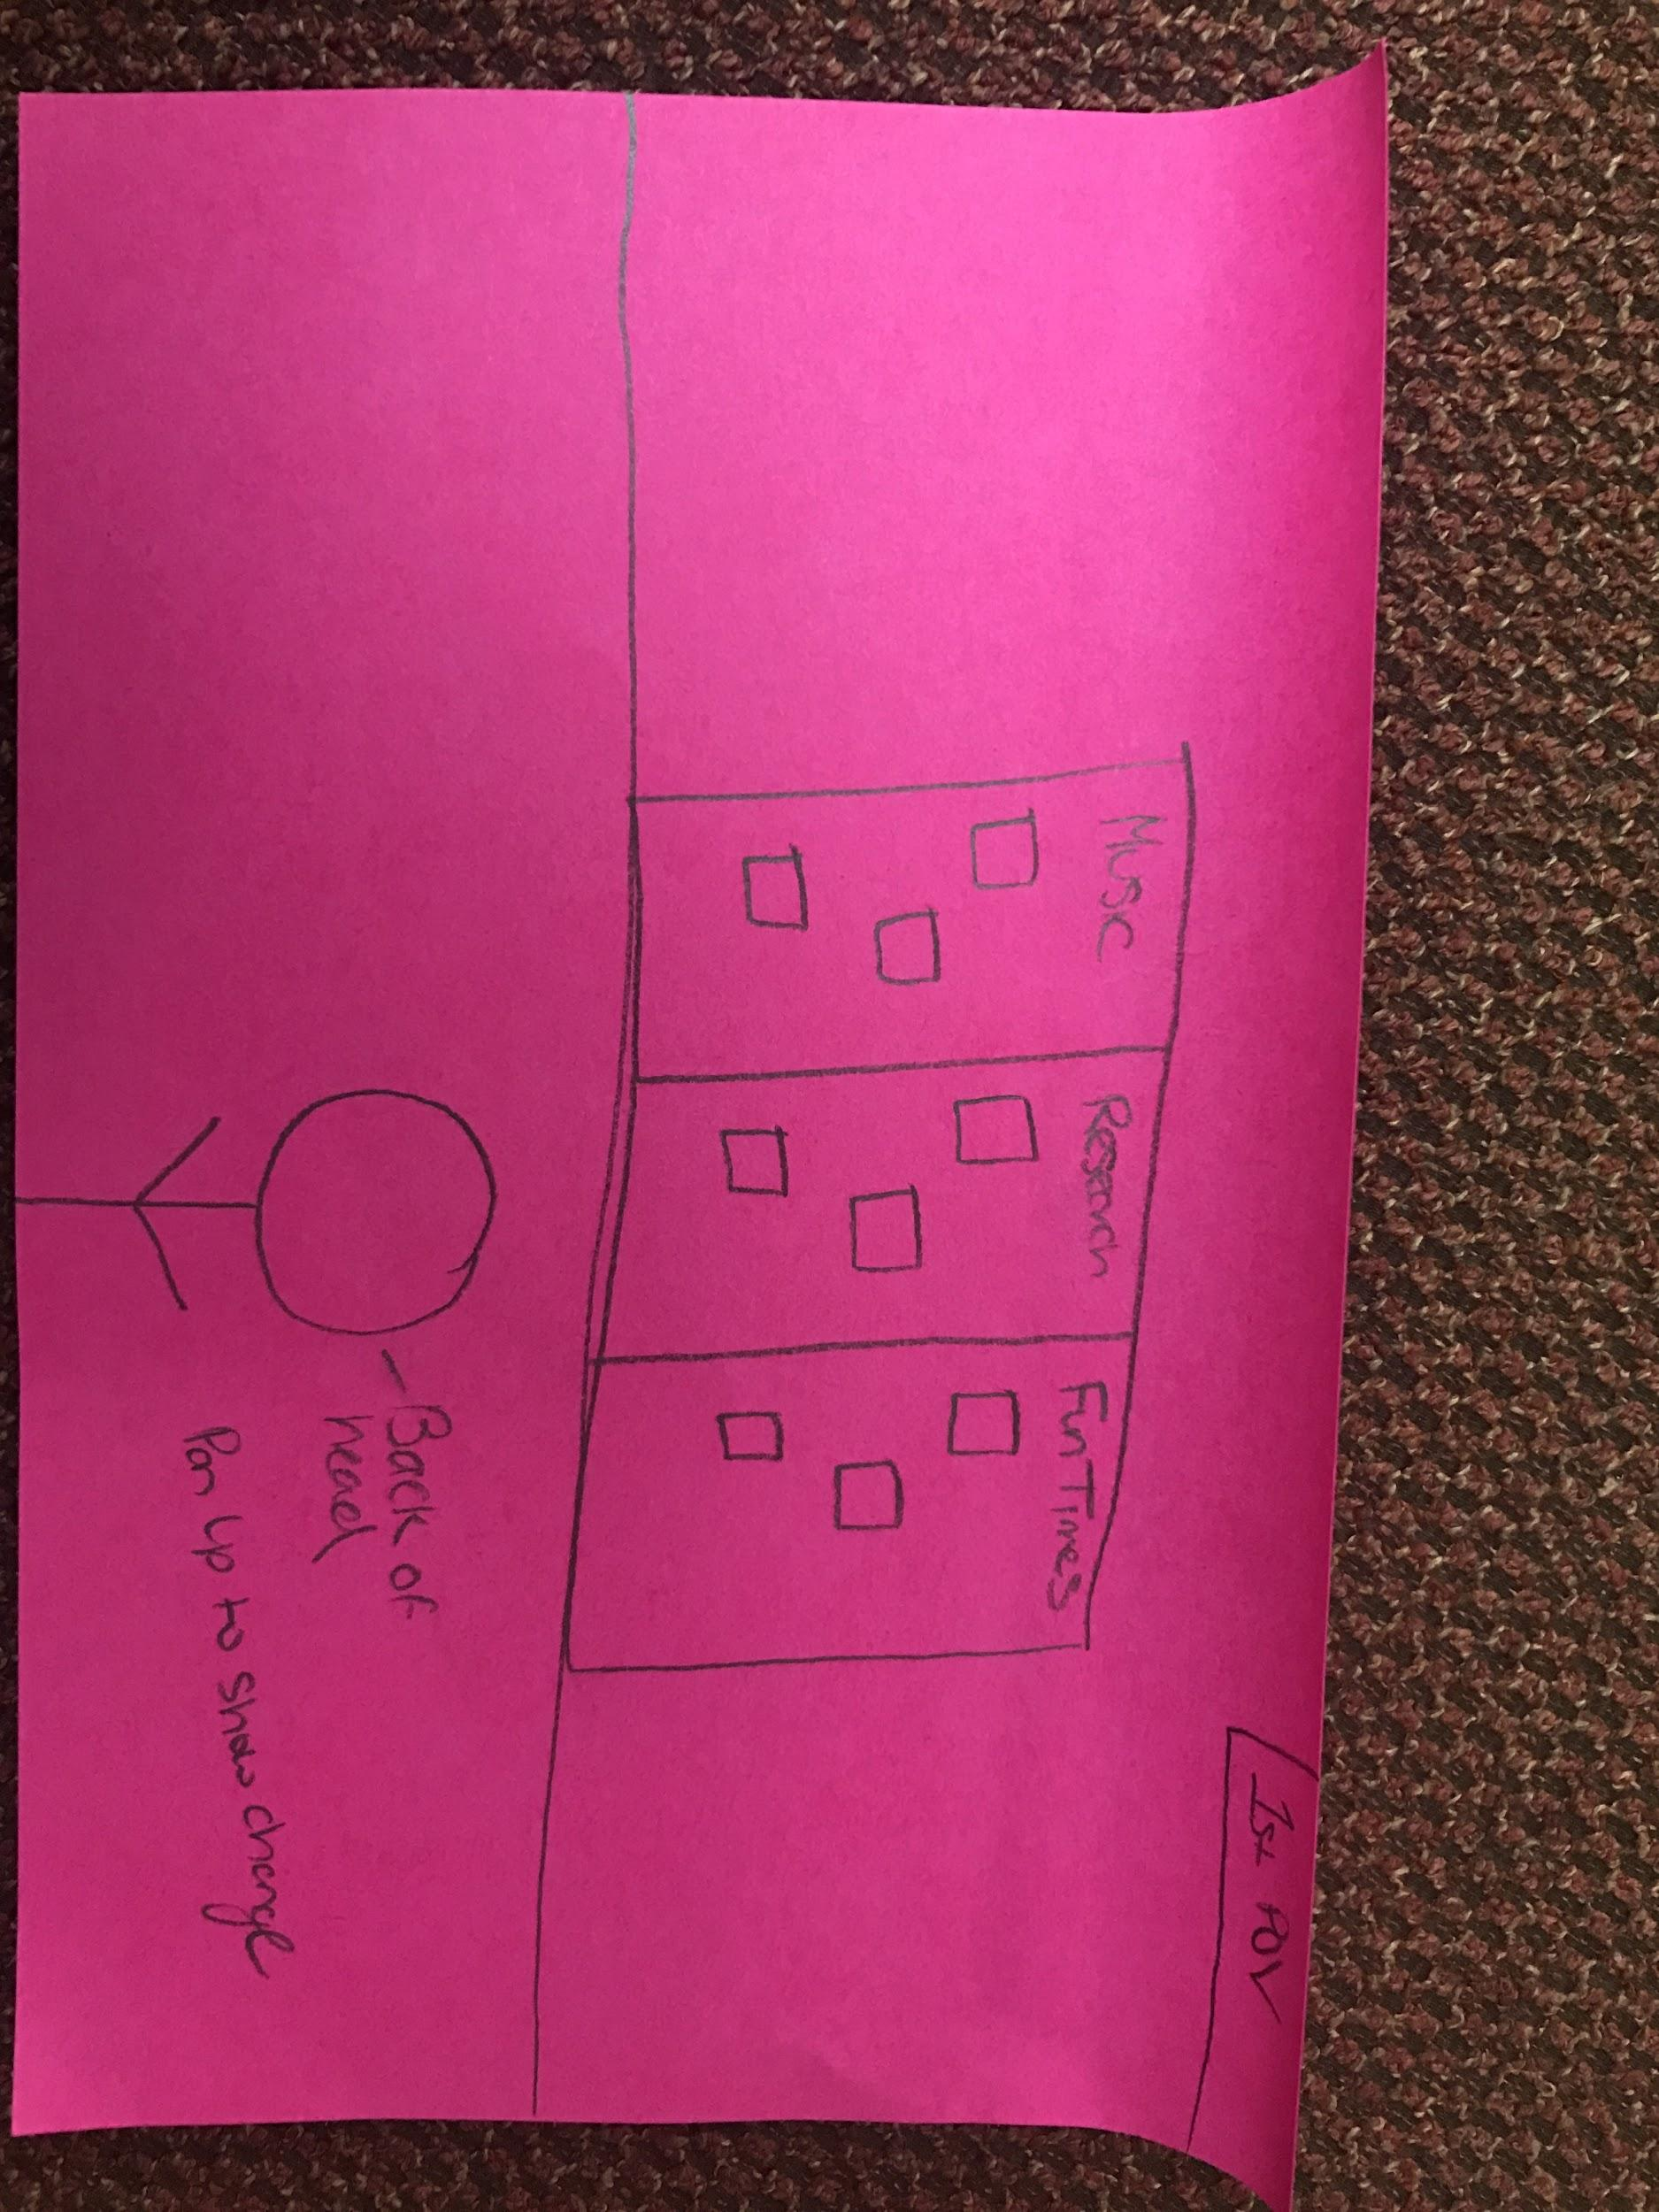 1st POV
Music
Research
Fun Times
- Back of
head
Pan up to show change